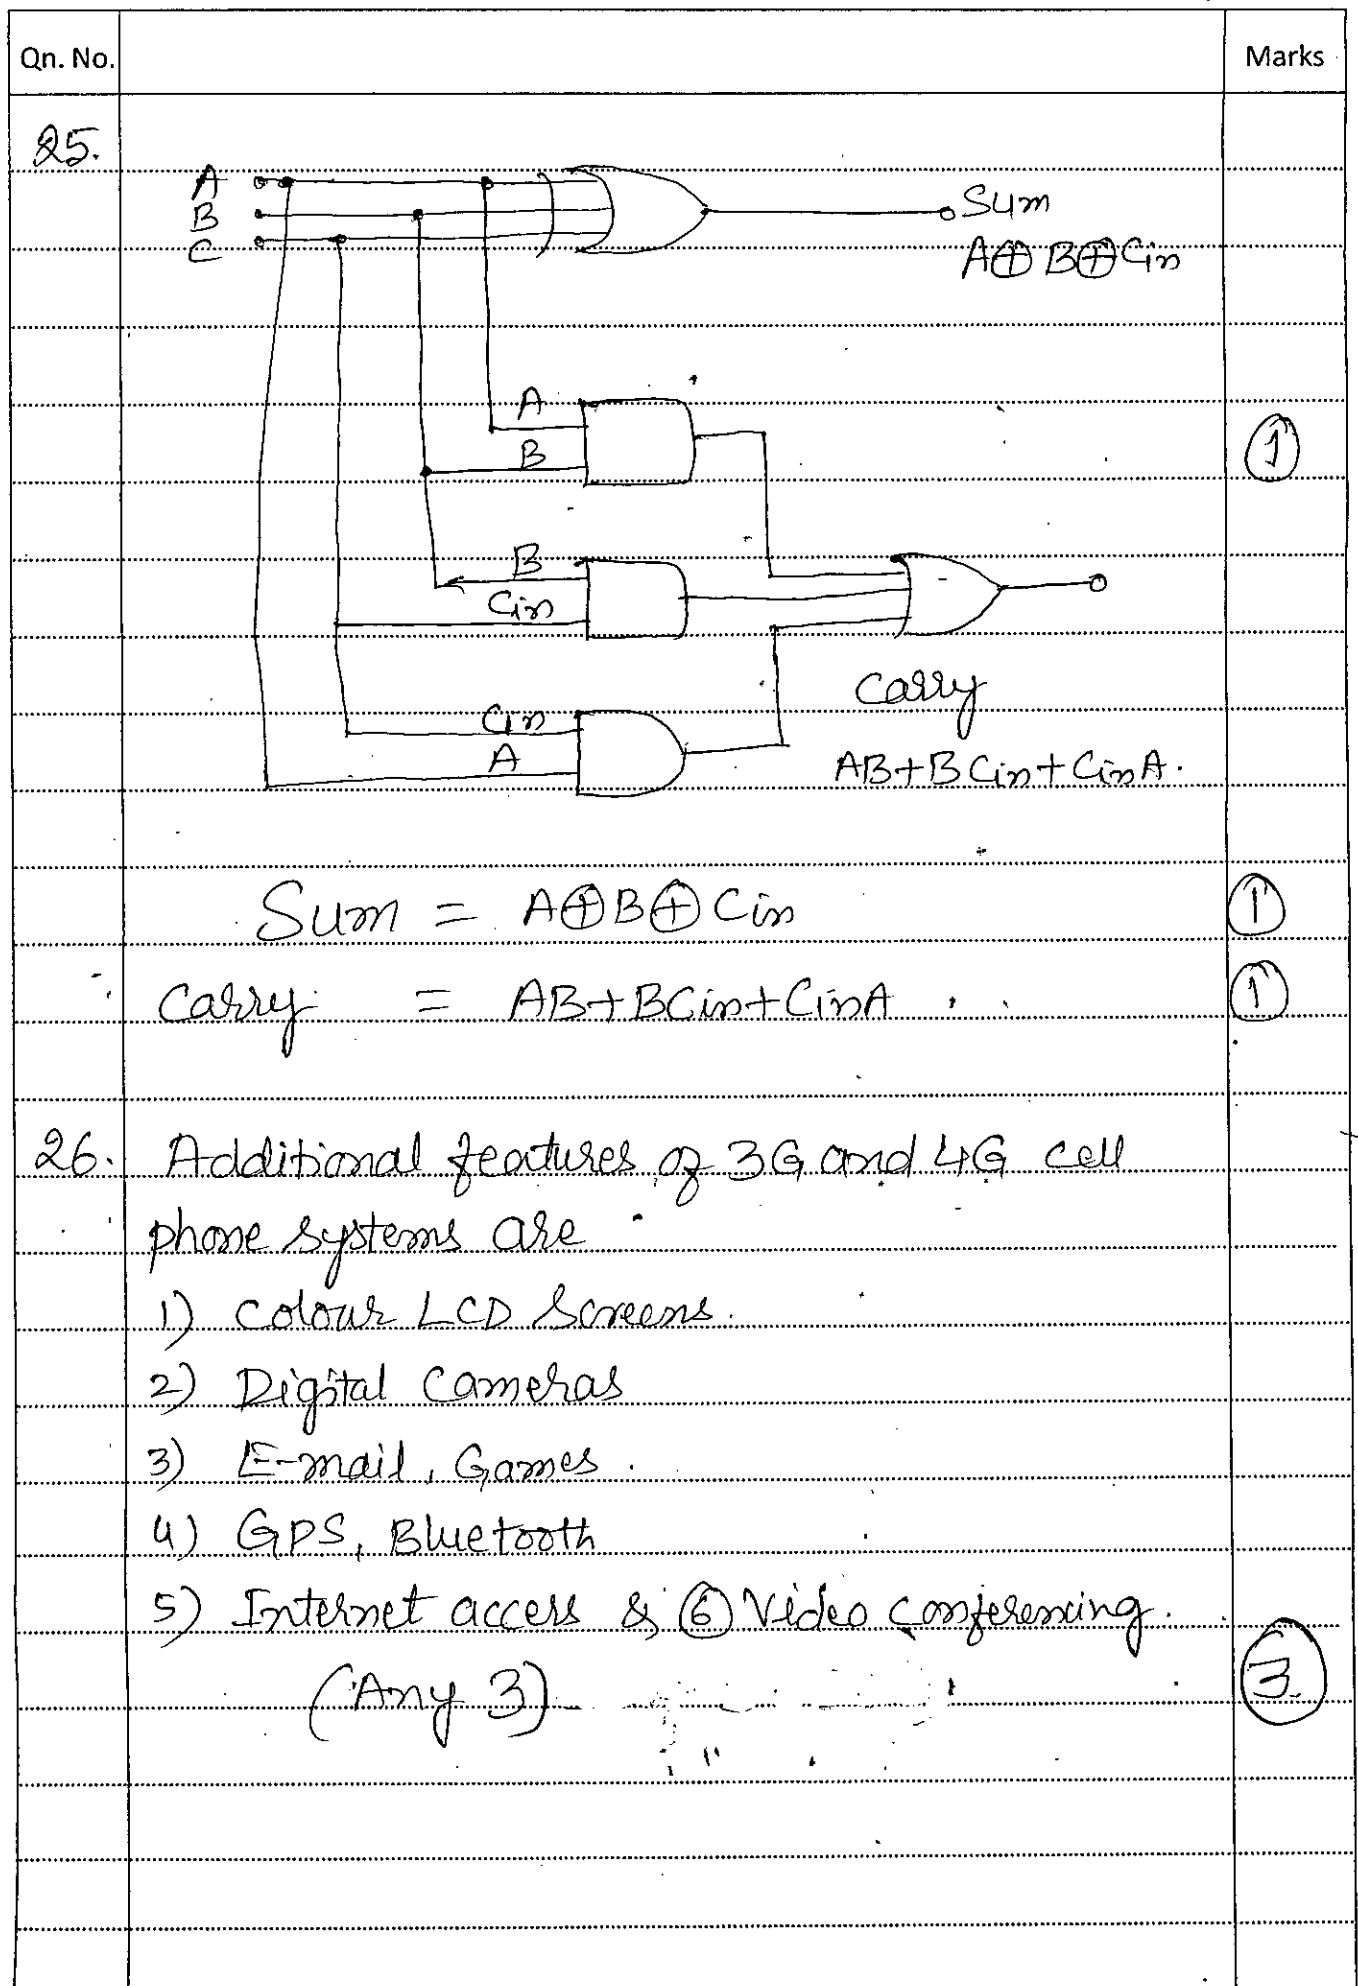 Qn. No. Marks
25.
A
B
C
Sum
A⊕B⊕Cin
A
B
1
B
Cin
Carry
AB+BCin+CinA.
Cin
A
Sum = A⊕B⊕Cin 1
Carry = AB+BCin+CinA 1
26. Additional features of 3G and 4G cell
phone systems are
1) Colour LCD Screens.
2) Digital Cameras
3) E-mail, Games.
4) GPS, Bluetooth
5) Internet access & 6 Video conferencing.
(Any 3) 3